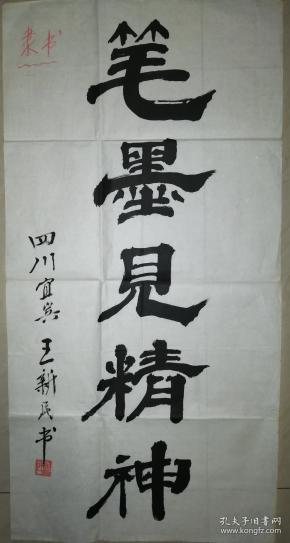 隶书
笔墨見精神
四川宜宾王新民书
孔夫子旧书网